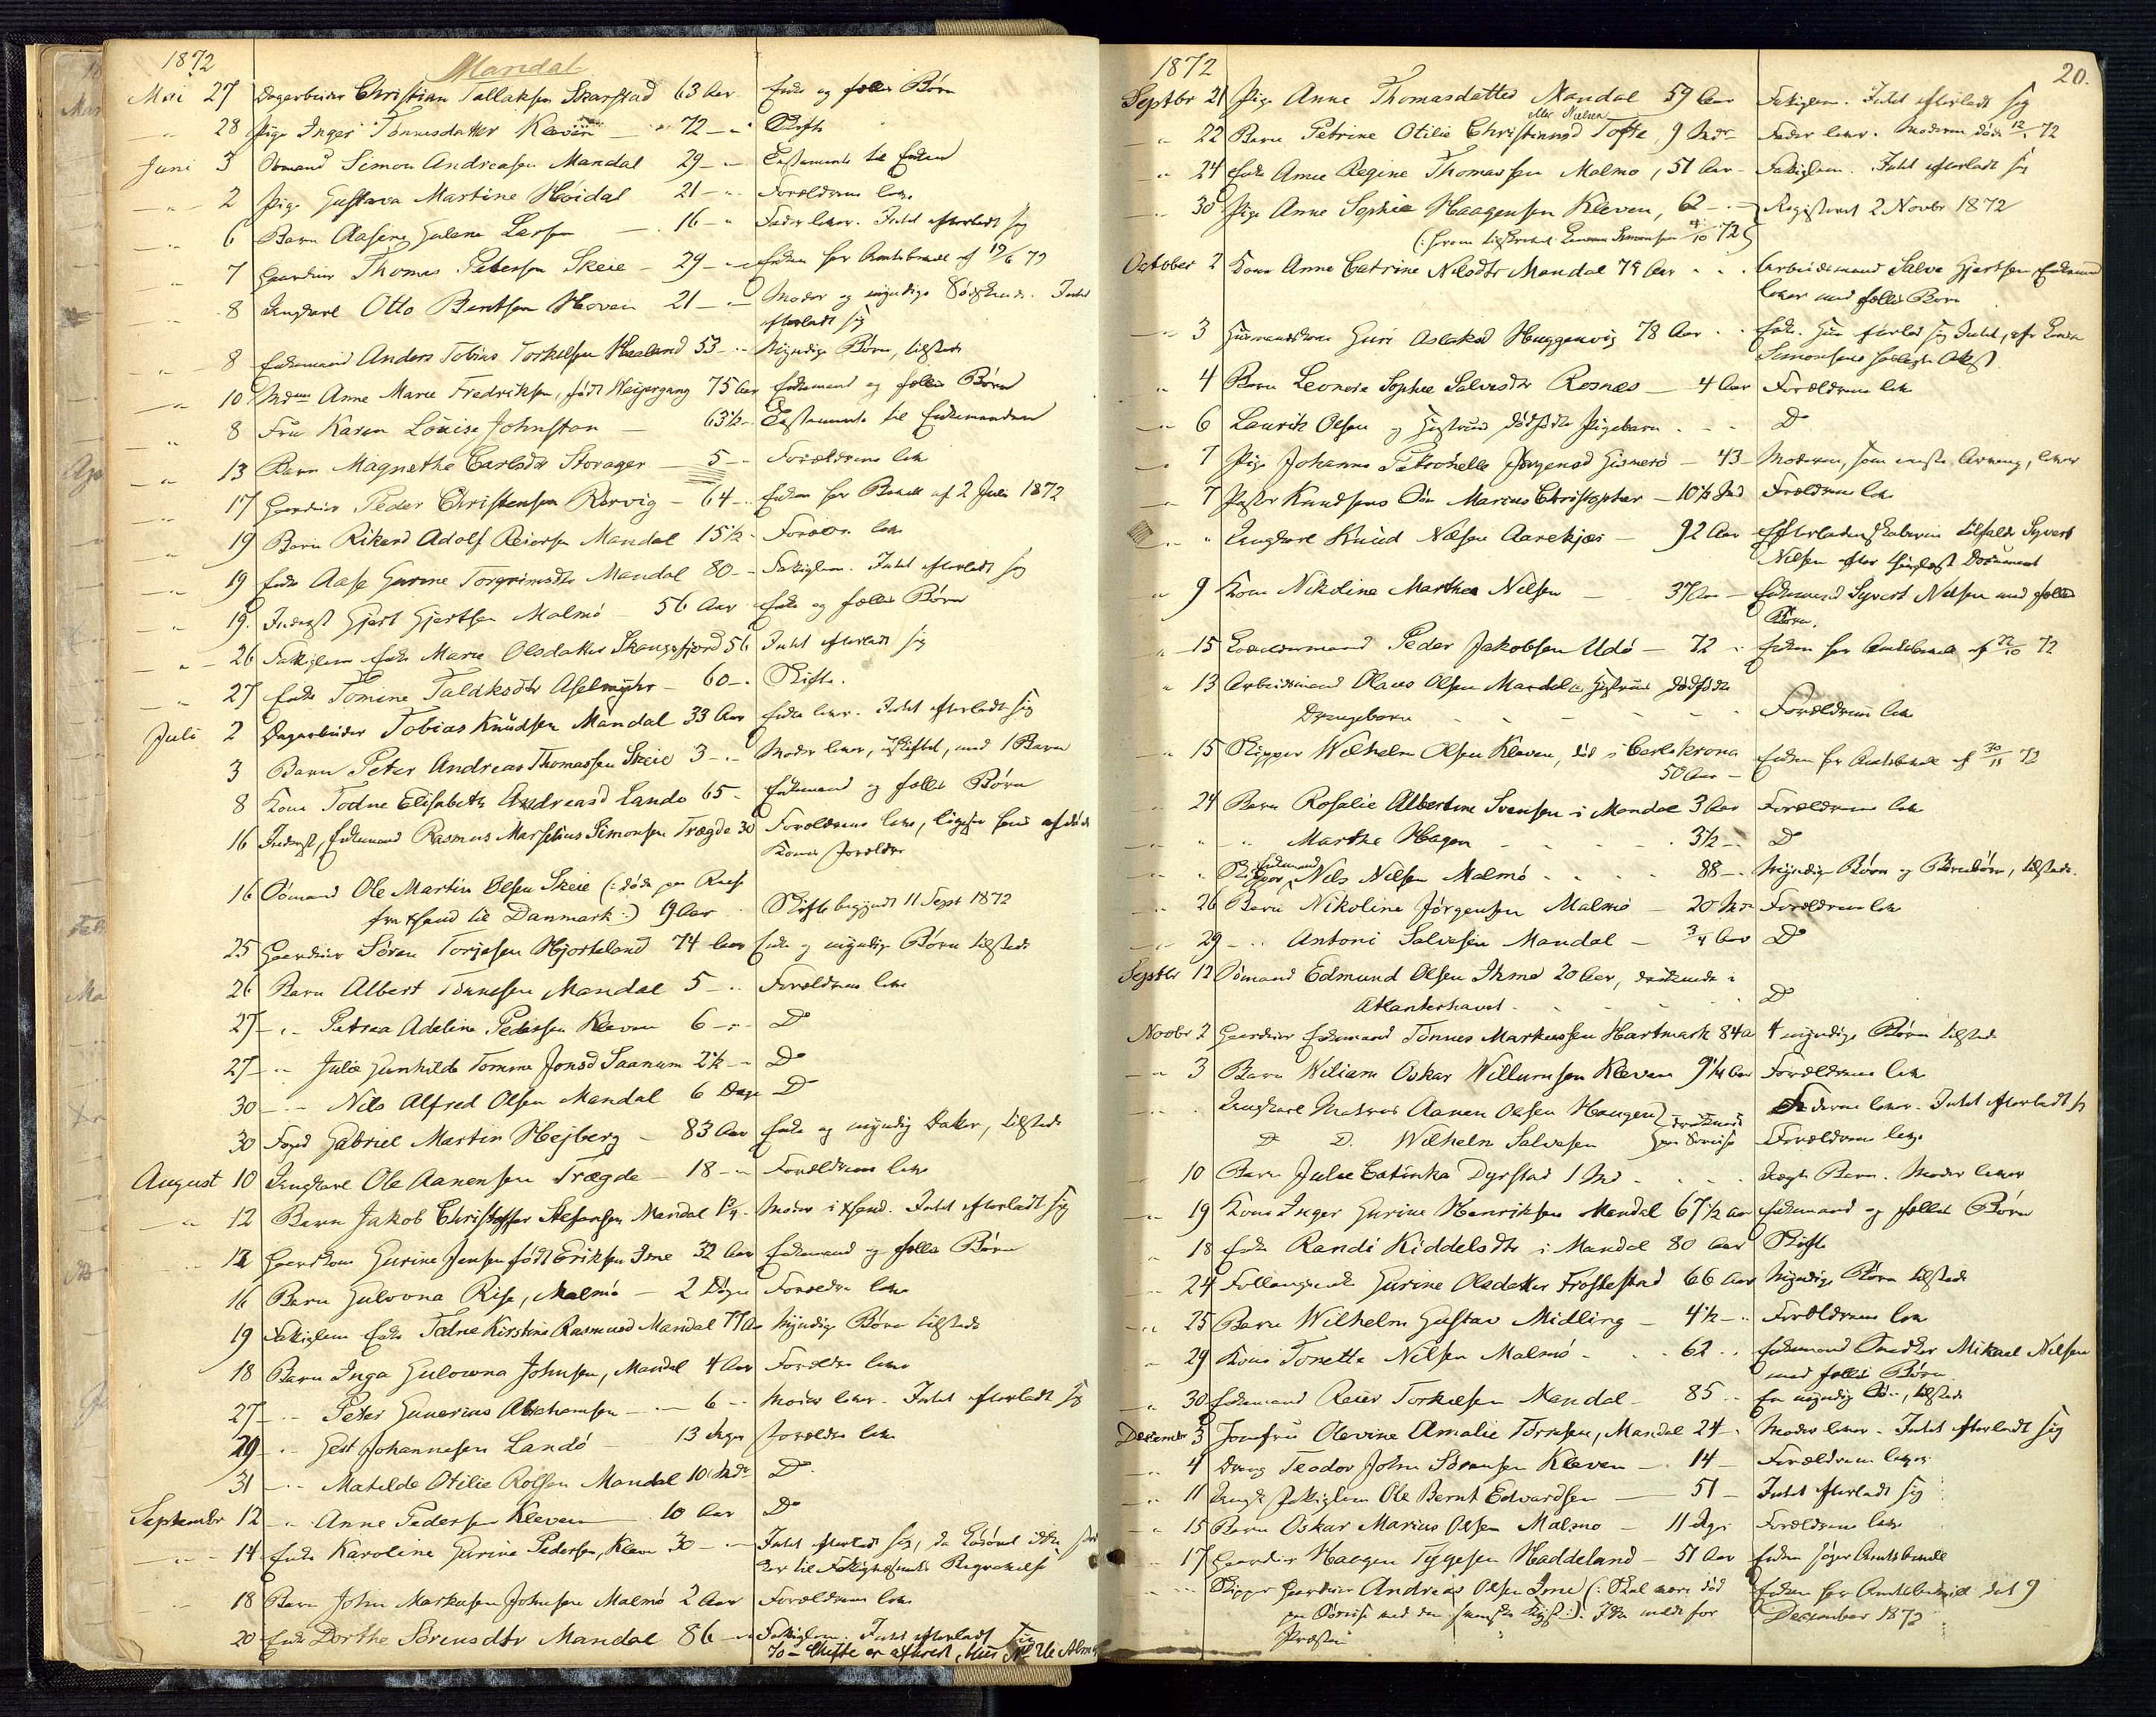 1872
Mandal
Mai 27 Dagarbeider Christian Tallaksen Skarstad 63 Aar Enke og fælles Børn
" 28 Pige Inger Tønnesdatter Kleven 72 " Skifte
Juni 3 Sømand Simon Andreasen Mandal 29 " Testamente til Enken
" 2 Pige Gustava Martine Høidal 21 " Forældrene lever
" 6 Barn Aasene Gulene Larsen 16 " Fader lever. Intet efterladt sig
" 7 Gaardbr Thomas Petersen Skeie 29 " Enken har Amtsbevill af 19/6 72
" 8 Ungkarl Otto Berntsen Hoven 21 " Moder og myndige Sødskende. Intet
efterladt sig
" 8 Enkemand Anders Tobias Torkelsen Haaland 53 " Myndige Børn, tilstede
" 10 Madm Anne Marie Fredriksen, født Weiergang 75 Aar Enkemand og fælles Børn
" 8 Fru Karen Louise Johnston 63½ " Testamente til Enkemanden
" 13 Barn Magnethe Carlsdtr Storager 5 " Forældrene lever
" 17 Gaardbr Peder Christensen Rørvig 64 " Enken har Bevill af 2 Juli 1872
" 19 Barn Rikard Adolf Reiersen Mandal 15½ " Foræld. lever
" 19 Enke Aase Gurine Torgrimsdtr Mandal 80 " Fattiglem. Intet efterladt sig
" 19 Inderst Gjert Gjertsen Malmø 56 Aar Enke og fælles Børn
" 26 Fattiglem Enke Marie Olsdatter Skaugsfjord 56 Intet efterladt sig
" 27 Enke Tomine Taldksdtr 60 " Skifte.
Juli 2 Dagarbeider Tobias Knudsen Mandal 33 Aar Enke lever. Intet efterladt sig
3 Barn Peter Andreas Thomassen Skeie 3 " Moder lever, uskiftet, med 1 Barn
8 Kone Todne Elisabeth Andreasd Landø 65 " Enkemand og fælles Børn
16 Inderst, Enkemand Rasmus Marselius Simonsen Trægde 30 Forældrene lever, ligesaa hans afdøde
Kones Forældre
16 Sømand Ole Martin Olsen Skeie (: døde paa Reise
fra Xsand til Danmark:) 19 Aar Skifte begyndt 11 Sept 1872
25 Gaardbr Søren Torjesen Hjorteland 74 Aar Enke og myndige Børn tilstede
26 Barn Albert Tønnesen Mandal 5 " Forældrene lever
27 " Petrea Adeline Pedersen Kleven 6 " Do
27 " Julie Gunhilde Tomine Jonsd Saanum 2½ " Do
30 " Nils Alfred Olsen Mandal 6 Dage Do
30 Foged Gabriel Martin Hejberg 83 Aar Enke og myndig Datter, tilstede
August 10 Ungkarl Ole Aanensen Trægde 18 " Forældrene lever
" 12 Barn Jakob Christoffer Stefansen Mandal 1¾ Moder i Xsand. Intet efterladt sig
" 12 Gaardkone Gurine Jensen født Eriksen Ime 32 Aar Enkemand og fælles Børn
16 Barn Gulovna Rise, Malmø 2 Døgn Forældre lever
19 Fattiglem Enke Todne Kirstine Rasmusd Mandal 77 Aar Myndige Børn tilstede
18 Barn Inga Gulowna Johnsen, Mandal 4 Aar Forældre lever
27 " Peter Gunerius Abrahamsen 6 " Moder lever. Intet efterladt sig
29 " Johannesen Landø 13 Forældre lever
31 " Matilde Otilie Rolfsen Mandal 10 Mdr Do
September 12 " Anne Pedersen Kleven 10 Aar Do
" 14 Enke Karoline Gurine Pedersen, Kleven 30 " Intet efterladt sig, da
til
18 Barn John Markusen Johnsen Malmø 2 Aar Forældrene lever
20 Enke Dorthe Sørensdtr Mandal 86 " Fattiglem. Intet efterladt sig
Skifte er afholdt, Huus No
1872
20.
Septbr 21 Pige Anne Thomasdatter Mandal 59 Aar Fattiglem. Intet efterladt sig
eller Nielsen
" 22 Barn Petrine Otilie Christiansd Tofte, 9 Mdr Fader lever. Moderen døde 12/1 72
" 24 Enke Anne Regine Thomassen Malmo, 51 Aar Fattiglem. Intet efterladt sig
" 30 Pige Anne Sophie Haagensen Kleven, 62 " Registreret 2 Novbr 1872
October 2 Kone Anne Catrine Nilsdtr Mandal 75 Aar Arbeidsmand Salve Gjertsen Enkemand
lever med fælles Børn
" 3 Huusmandskone Guri Aslaksd Huggenvig 78 Aar Enke. Hun efterlod sig Intet,
Simonsens
" 4 Barn Leonora Sophie Salvesdtr Rosnes 4 Aar Forældrene lever
" 6 Laurits Olsen og Hustrus dødfødte Pigebarn Do
" 7 Pige Johanne Petronelle Jørgensd Gismerø 43 Moderen, som eneste Arving, lever
" 7 Pastor Knudsens Søn Marius Christopher 10½ Md Forældrene lever
" " Ungkarl Knud Nilsen Aarekjær 92 Aar Efterladenskaberne tilfaldt Syvert
Nilsen efter Document
" 9 Kone Nikoline Marthea Nilsen 37 Aar Enkemand Syvert Nilsen med fælles
Børn.
" 15 Peder Jakobsen Udø 72 " Enken har Amtsbevill af 22/10 72
" 13 Arbeidsmand Olaus Olsen Mandal og Hustrues dødfødte
Drengebarn Forældrene lever
" 15 Skipper Wilhelm Olsen Kleven, død i Carlskrona Enken har Amtsbevill af 30/11 72
50 Aar
" 24 Barn Rosalie Albertine Svensen i Mandal 3 Aar Forældrene lever
" " " Marthe Hagen 3½ " Do
Enkemand
" " Skipper Nils Nilsen Malmø 88 " Myndige Børn og Børnebørn, tilstede.
" 26 Barn Nikoline Jørgensen Malmø 20 Mdr Forældrene lever
" 29 " Antoni Salvesen Mandal ¾ Aar Do
Septbr 12 Sømand Edmund Olsen Ihme 20 Aar, druknede i
Atlanterhavet Do
Novbr 2 Gaardbr Enkemand Tønnes Markussen Hartmark 84 A 4 myndige Børn tilstede
" 3 Barn Wiliam Oskar Willumsen Kleven 9¼ Aar Forældrene lever
" " Ungkarl Matros Aanen Olsen Haugen } druknet Faderen lever. Intet efterladt sig
Do Do Wilhelm Salvesen paa Søreise Forældrene lever
10 Barn Julie Catinka Dyrstad 1 Md Uægte Barn. Moder lever
" 19 Kone Inger Gurine Henriksen Mandal 67½ Aar Enkemand og fælles Børn
" 18 Enke Randi Kiddelsdtr i Mandal 80 Aar Skifte
" 24 Gurine Olsdatter Frostestad 66 Aar Myndige Børn tilstede
" 25 Barn Wilhelm Gustav Midling 4½ " Forældrene lever
" 29 Kone Tonette Nilsen Malmø 62 " Enkemand Snedker Mikael Nilsen
med fælles Børn
" 30 Enkemand Reier Torkelsen Mandal 85 " En myndig Søn, tilstede
December 3 Jomfru Olevine Amalie Tørresen, Mandal 24 " Moder lever. Intet efterladt sig
" 4 Dreng Teodor John Sørensen Kleven 14 " Forældrene lever
" 11 Ungk Fattiglem Ole Bernt Edvardsen 51 " Intet efterladt sig
" 15 Barn Oskar Marius Olsen Malmø 11 Forældrene lever
" 17 Gaardbr Haagen Tygesen Haddeland 51 Aar Enken søger Amtsbevill
" " Skipper Gaardbr Andreas Olsen Ime (: Skal være død Enken har Amtsbevill det 9
paa Søreise ved den svenske Kyst:). Ikke meldt for December 1872
Præsten